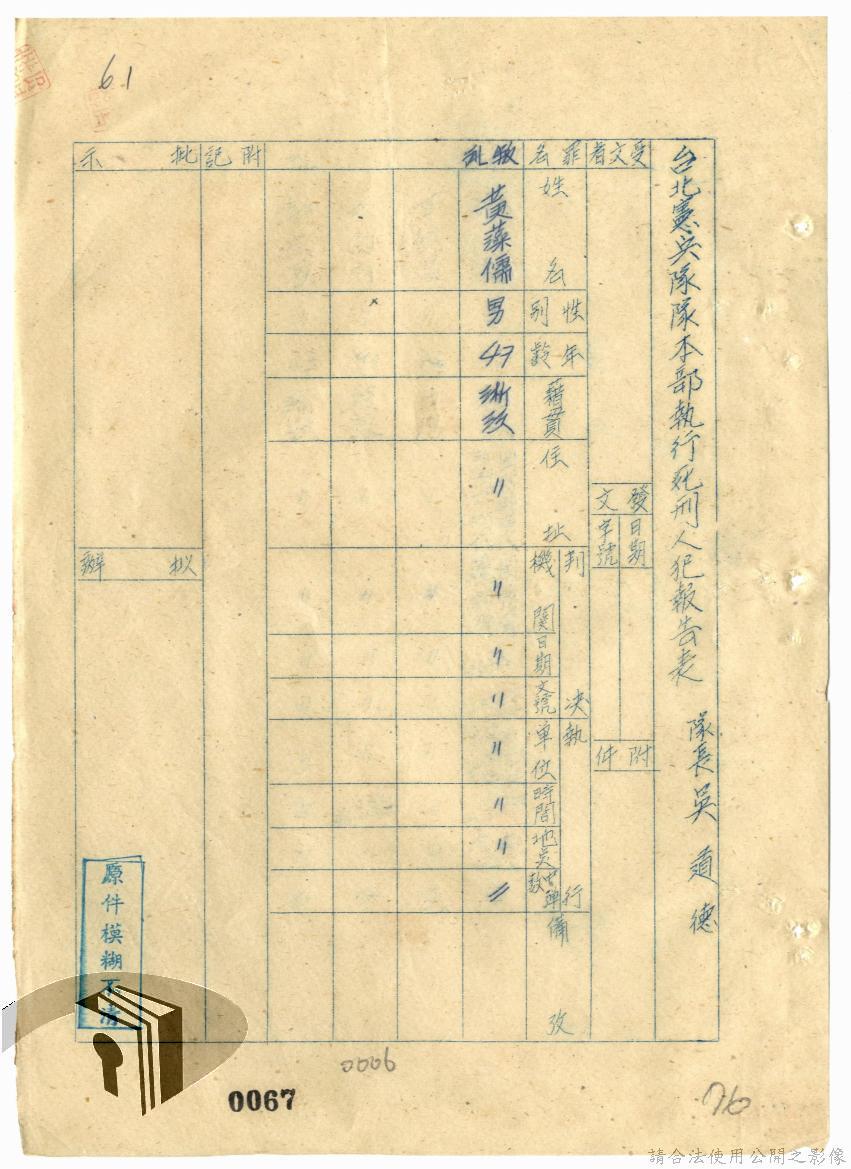 61
台北憲兵隊隊本部執行死刑人犯報告表
隊長吳道德
受文者
發文
日期
字號
附件
罪名
姓名
性別
年齡
籍貫
住址
判決
機關
日期
文號
執行
單位
時間
地點
中彈數
備攷
叛亂
黃藻儒
男
47
浙江
〃
〃
〃
〃
〃
〃
〃
〃
附記
批示
擬辦
原件模糊不清
0006
0067
76
請合法使用公開之影像